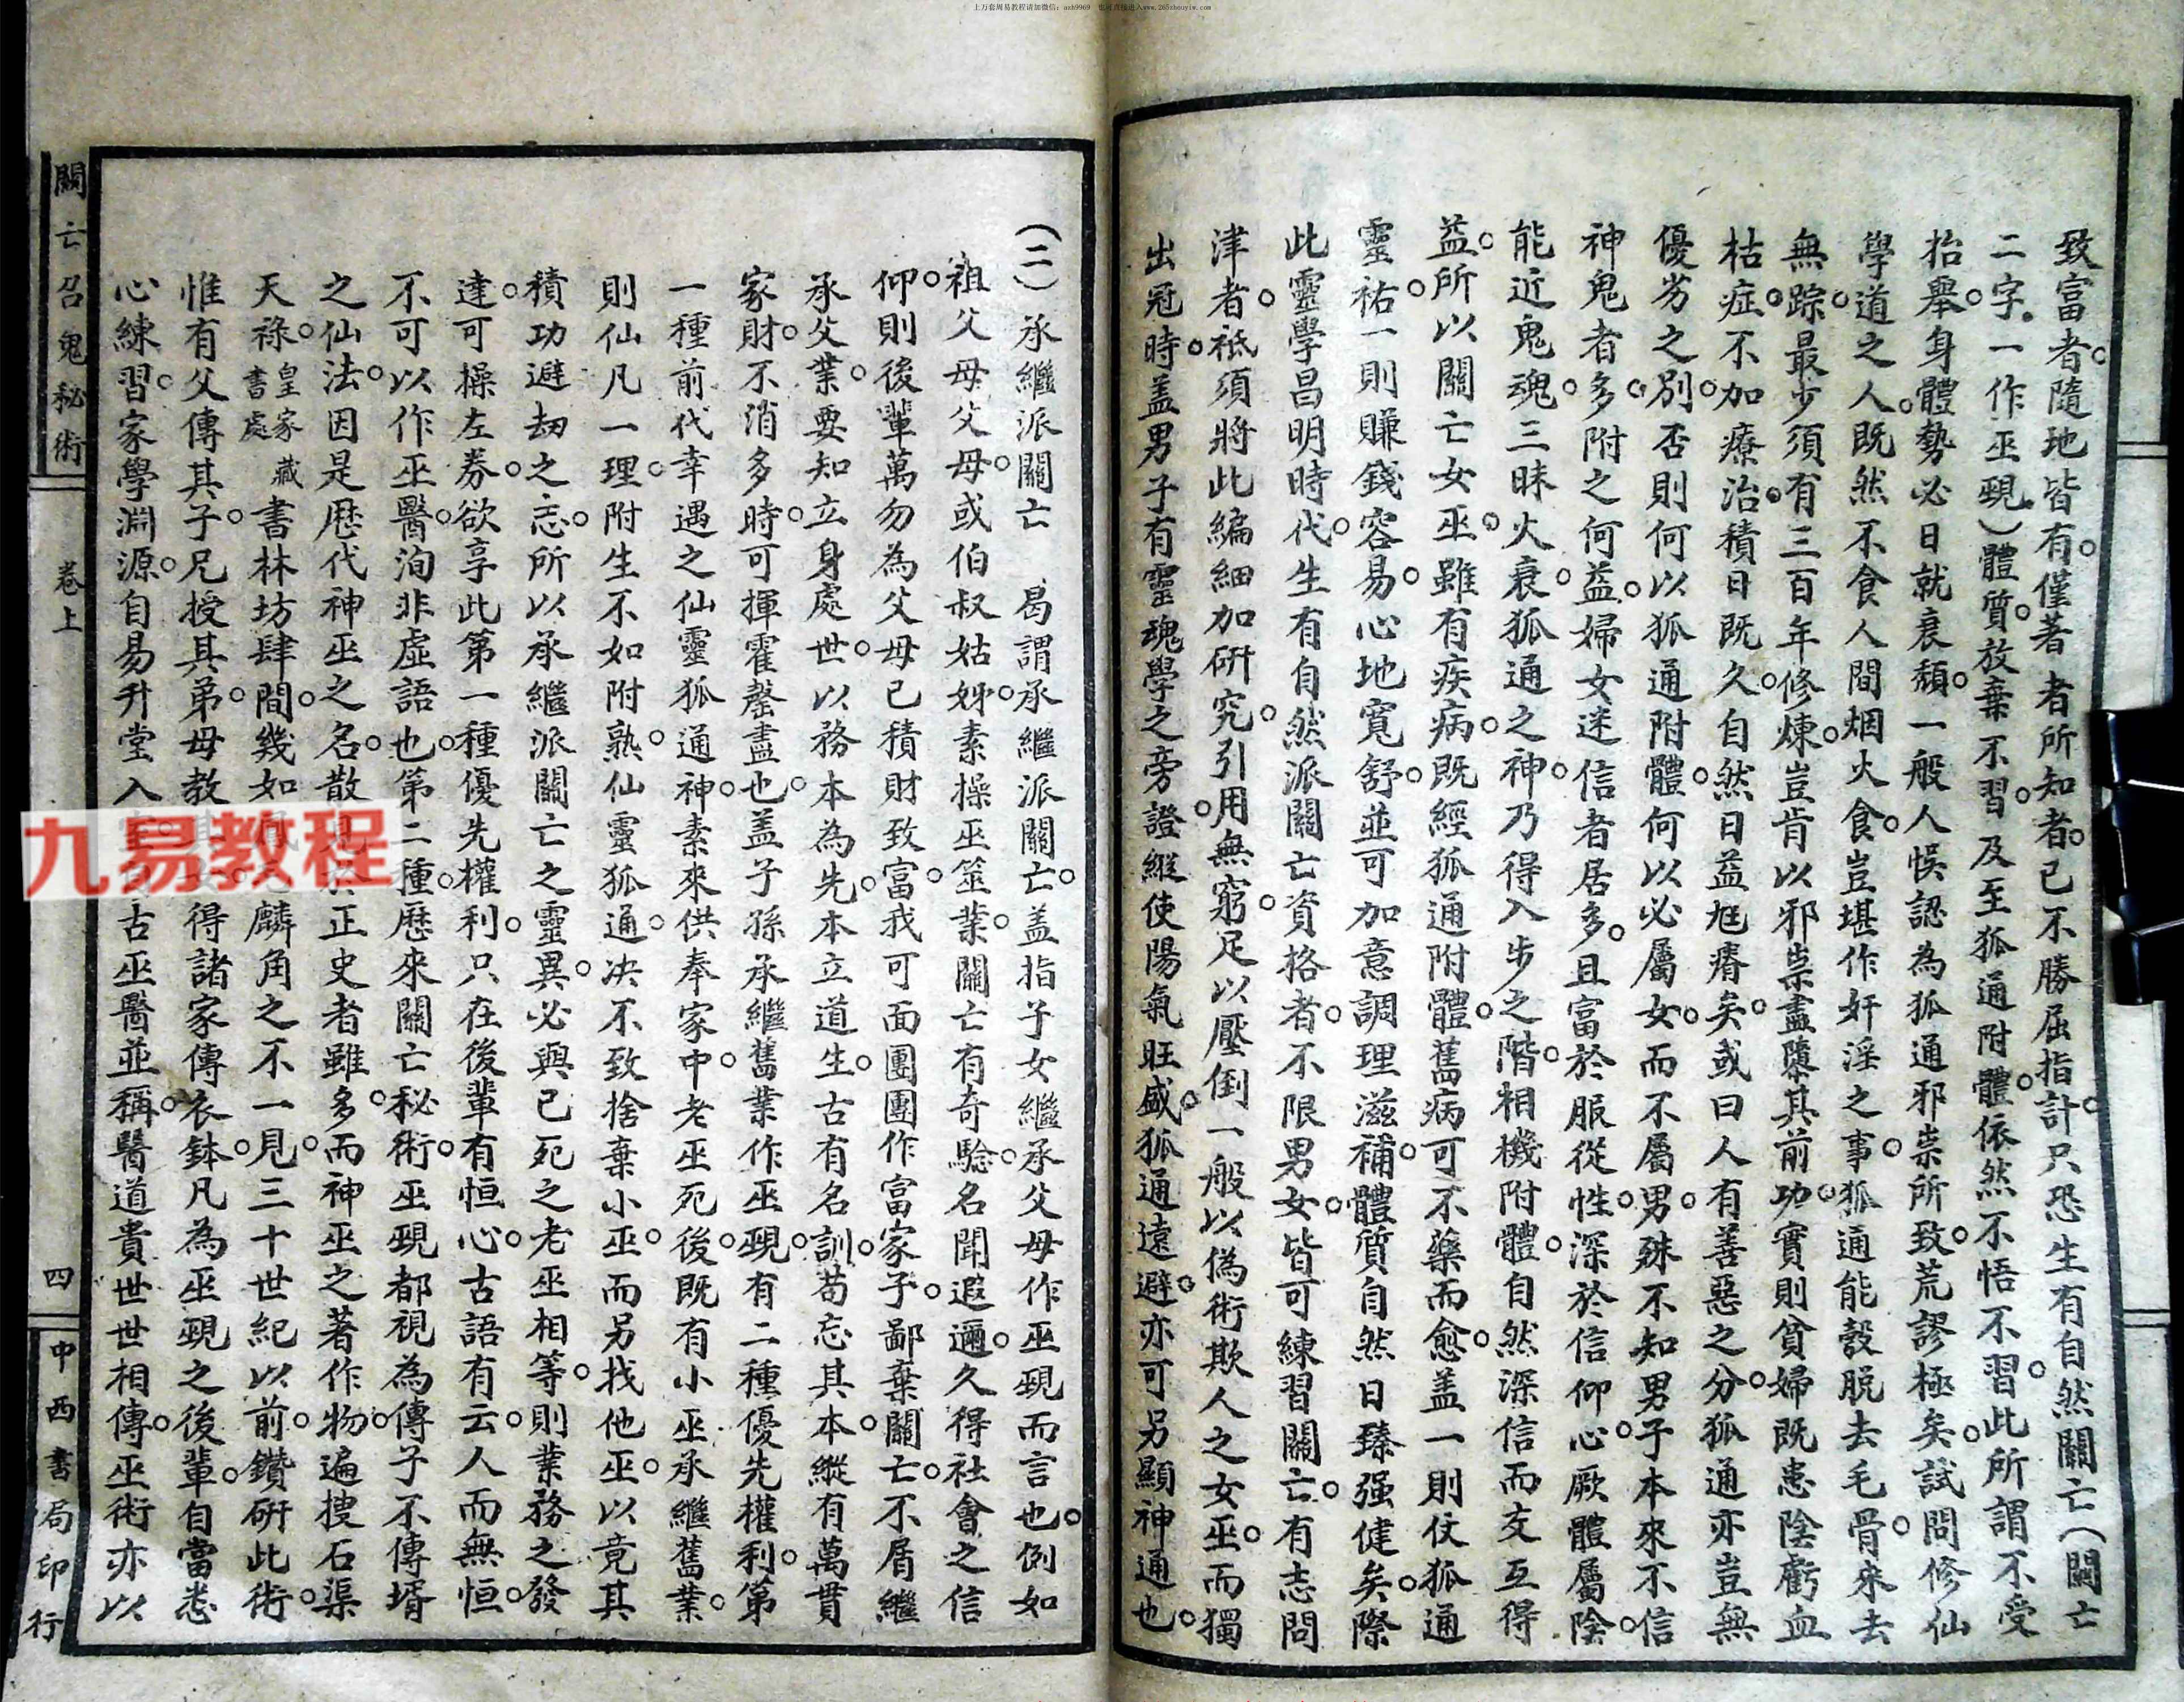 上万套周易教程请加微信：anh9969 也可直接进入www.265zhouyiw.com
致富者。隨地皆有。僅著者所知者。已不勝屈指計。只恐生有自然關亡（關亡
二字。一作巫覡）體質。放棄不習。及至狐通附體。依然不悟不習。此所謂不受
抬舉。身體勢必日就衰頹。一般人悞認為狐通邪祟所致。荒謬極矣。試問修仙
學道之人。既然不食人間烟火食。豈堪作奸淫之事。狐通能彀脫去毛骨。來去
無踪。最少須有三百年修煉。豈肯以邪祟盡隳其前功。實則貧婦既患陰虧血
枯症。不加療治。積日既久。自然日益尪瘠矣。或曰人有善惡之分。狐通亦豈無
優劣之別。否則何以狐通附體。何以必屬女。而不屬男。殊不知男子本來不信
神鬼者多。附之何益。婦女迷信者居多。且富於服從性。深於信仰心。厥體屬陰。
能近鬼魂。三昧火衰。狐通之神。乃得入步之階。相機附體。自然深信而交互得
益。所以關亡女巫。雖有疾病。既經狐通附體。舊病可不藥而愈。盖一則仗狐通
靈祐。一則賺錢容易。心地寬舒。並可加意調理滋補。體質自然日臻强健矣。際
此靈學昌明時代。生有自然派關亡資格者。不限男女。皆可練習關亡。有志問
津者。祗須將此編細加研究。引用無窮。足以壓倒一般以偽術欺人之女巫。而獨
出冠時。盖男子有靈魂學之旁證。縱使陽氣旺盛。狐通遠避。亦可另顯神通也。
（二）承繼派關亡　曷謂承繼派關亡。盖指子女繼承父母作巫覡而言也。例如
祖父母父母。或伯叔姑姊。素操巫筮業。關亡有奇驗。名聞遐邇。久得社會之信
仰。則後輩萬勿為父母已積財致富。我可面團團作富家子。鄙棄關亡。不屑繼
承父業。要知立身處世。以務本為先。本立道生。古有名訓。苟忘其本。縱有萬貫
家財。不消多時。可揮霍罄盡也。盖子孫承繼舊業作巫覡。有二種優先權利。第
一種前代幸遇之仙靈狐通神。素來供奉家中。老巫死後。既有小巫承繼舊業。
則仙凡一理。附生不如附熟。仙靈狐通。决不致捨棄小巫。而另找他巫。以竟其
積功避刼之志。所以承繼派關亡之靈異。必與已死之老巫相等。則業務之發
達。可操左券。欲享此第一種優先權利。只在後輩有恒心。古語有云。人而無恒。
不可以作巫醫。洵非虛語也。第二種。歷來關亡秘術。巫覡都視為傳子不傳壻
之仙法。因是歷代神巫之名。散見於正史者雖多。而神巫之著作物。遍搜石渠
天祿。皇家藏書處書林坊肆間。幾如鳳毛麟角之不一見。三十世紀以前。鑽研此術。
惟有父傳其子。兄授其弟。母教其女。得諸家傳衣鉢。凡為巫覡之後輩。自當悉
心練習。家學淵源。自易升堂入室。自古巫醫並稱。醫道貴世世相傳。巫術亦以
關亡召鬼秘術
卷上
四
中西書局印行
九易教程